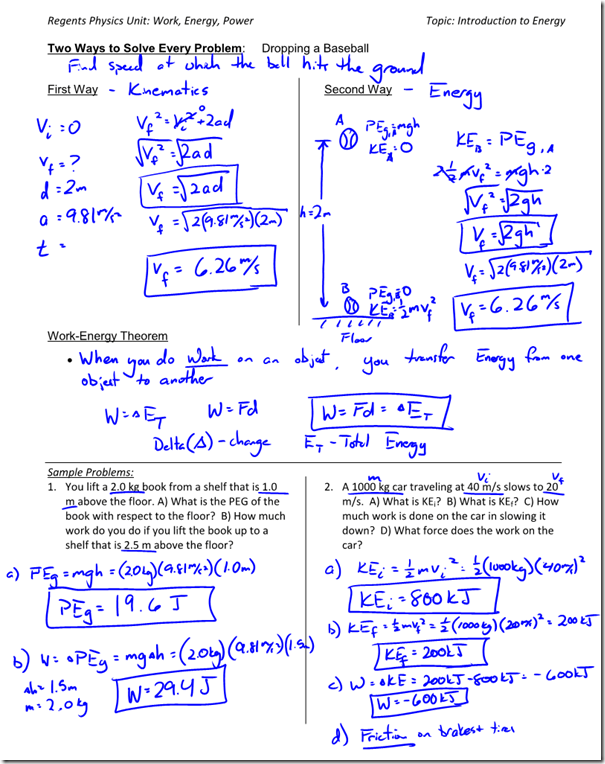 Regents Physics Unit: Work, Energy, Power Topic: Introduction to Energy
Two Ways to Solve Every Problem: Dropping a Baseball
Find speed at which the ball hits the ground
First Way - Kinematics
Vi = 0
Vf = ?
d = 2m
a = 9.81 m/s²
t =
Vf² = Vi² + 2ad
0
√Vf² = √2ad
Vf = √2ad
Vf = √2(9.81 m/s²)(2m)
Vf = 6.26 m/s
Second Way - Energy
A
PEg,A = mgh
KEA = 0
h = 2m
B
PEg,B = 0
KEB = ½mvf²
Floor
KEB = PEg,A
2 ½ mvf² = mgh · 2
√Vf² = √2gh
Vf = √2gh
Vf = √2(9.81 m/s²)(2m)
Vf = 6.26 m/s
Work-Energy Theorem
• When you do Work on an object, you transfer Energy from one
object to another
W = ΔET W = Fd W = Fd = ΔET
Delta(Δ) - change ET - Total Energy
Sample Problems:
1. You lift a 2.0 kg book from a shelf that is 1.0
m above the floor. A) What is the PEG of the
book with respect to the floor? B) How much
work do you do if you lift the book up to a
shelf that is 2.5 m above the floor?
a) PEg = mgh = (2.0kg)(9.81 m/s²)(1.0m)
PEg = 19.6 J
b) W = ΔPEg = mgΔh = (2.0kg)(9.81 m/s²)(1.5m)
Δh = 1.5m
m = 2.0 kg
W = 29.4 J
m Vi Vf
2. A 1000 kg car traveling at 40 m/s slows to 20
m/s. A) What is KEi? B) What is KEf? C) How
much work is done on the car in slowing it
down? D) What force does the work on the
car?
a) KEi = ½mvi² = ½(1000kg)(40 m/s)²
KEi = 800 kJ
b) KEf = ½mvf² = ½(1000kg)(20 m/s)² = 200 kJ
KEf = 200 kJ
c) W = ΔKE = 200kJ - 800kJ = -600kJ
W = -600kJ
d) Friction on brakes & tires